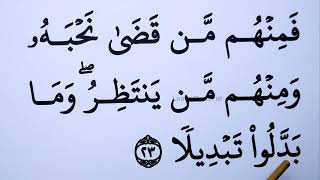 فَمِنْهُم مَّن قَضَىٰ نَحْبَهُۥ
وَمِنْهُم مَّن يَنتَظِرُ ۖ وَمَا
بَدَّلُوا۟ تَبْدِيلًا ﴿٢٣﴾